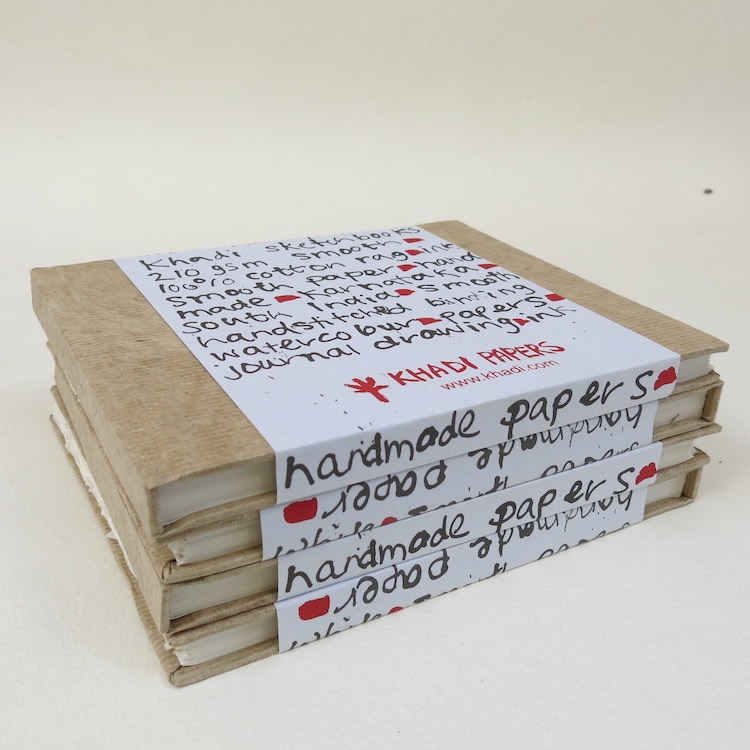 Khadi sketchbooks
210 gsm smooth
100% cotton rag ink
smooth paper hand
made Karnataka
South India smooth
handstitched binding
watercolour papers
journal drawing ink
KHADI PAPERS
www.khadi.com
handmade papers
handmade
paper
white
handmade papers
handmade
paper
white